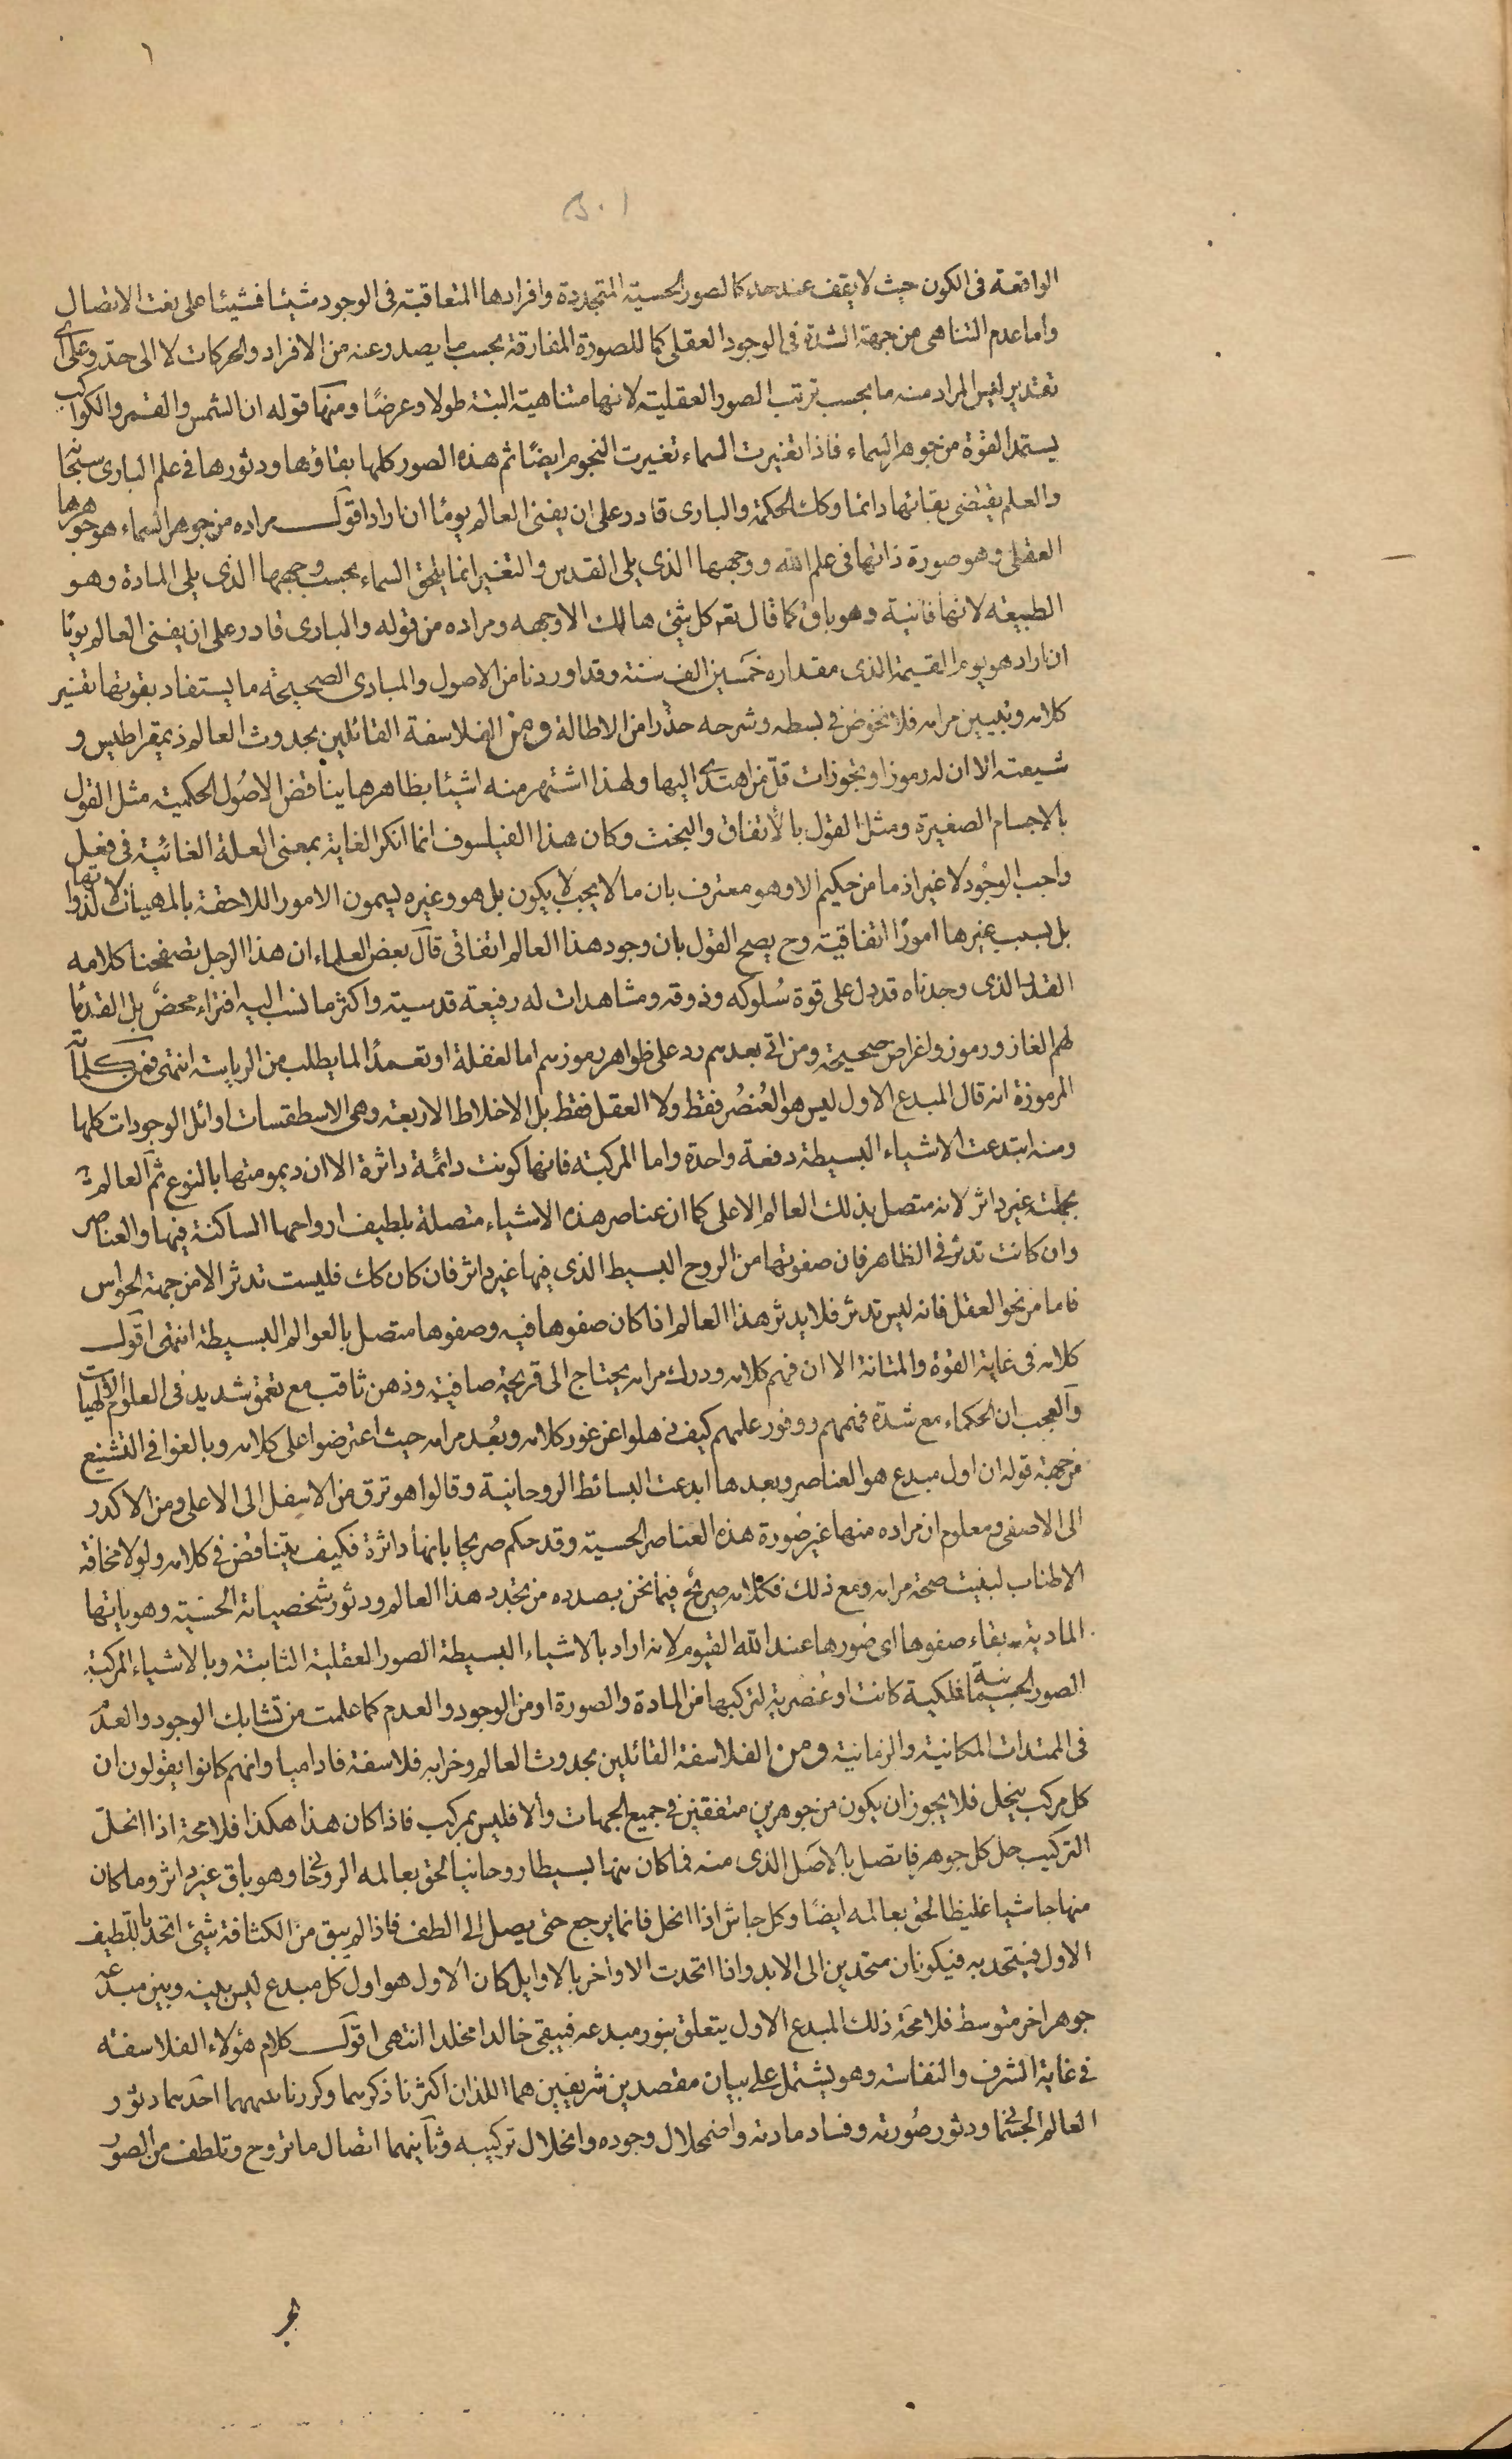 ١
١٠٥
الواقعة فى الكون حيث لا يقف عند حد كالصور الحسية المتجددة وافرادها المتعاقبة فى الوجود شيئا فشيئا على نعت الاتصال
واما عدم التناهى من جهة الشدة فى الوجود العقلى كما للصورة المفارقة بحسب ما يصدر عنه من الافراد والحركات لا الى حدّ وعلى اى
تقدير ليس المراد منه ما بحسب ترتب الصور العقلية لانها متناهية البتة طولا وعرضًا ومنها قوله ان الشمس والقمر والكواكب
يستمد القوة من جوهر السماء فاذا تغيرت السماء تغيرت النجوم ايضًا ثم هذه الصور كلها بقاؤها ودثورها فى علم البارى سبحانه
والعلم يقتضى بقائها دائما وكك الحكمة والبارى قادر على ان يفنى العالم يومًا ان اراد اقول مراده من جوهر السماء هو جوهرها
العقلى وهو صورة ذاتها فى علم الله ووجهها الذى يلى القدس والتغير انما يلحق السماء بحسب وجهها الذى يلى المادة وهو
الطبيعة لانها فانية وهو باق كما قال تعم كل شئ هالك الا وجهه ومراده من قوله والبارى قادر على ان يفنى العالم يومًا
ان اراد هو يوم القيمة الذى مقداره خمسين الف سنة وقد اوردنا من الاصول والمبادى الصحيحة ما يستفاد بقوتها تفسير
كلامه وتبيين مرامه فلا نخوض فى بسطه وشرحه حذرًا من الاطالة ومن الفلاسفة القائلين بحدوث العالم ذيمقراطيس و
شيعته الا ان له رموزا وتجوزات قلّ من اهتدى اليها ولهذا اشتهر منه اشياء بظاهرها يناقض الاصول الحكمية مثل القول
بالاجسام الصغيرة ومثل القول بالاتفاق والبخت وكان هذا الفيلسوف انما انكر الغاية بمعنى العلة الغائية فى فعل
واجب الوجُود لا غير اذ ما من حكيم الا وهو معترف بان ما لا يجب لا يكون بل هو وغيره يسمون الامور اللاحقة بالمهيات لا لذواتها
بل بسبب غيرها امورًا اتفاقية وح يصح القول بان وجود هذا العالم اتفاقى قال بعض العلماء ان هذا الرجل تصفحنا كلامه
القليل الذى وجدناه قد دل على قوة سُلوكه وذوقه ومشاهدات له رفيعة قدسية واكثر ما نسب اليه افتراء محضٌ بل القدماء
لهم الغاز ورموز واغراض صحيحة ومن اتى بعدهم رد على ظواهر رموزهم اما لغفلة او تعمدًا لما يطلب من الرياسة انتهى فمن كلماته
المرموزة انه قال المبدع الاول ليس هو العُنصُر فقط ولا العقل فقط بل الاخلاط الاربعة وهى الاسطقسات اوائل الوجودات كلها
ومنه ابتدعت الاشياء البسيطة دفعة واحدة واما المركبة فانها كونت دائمًة داثرة الا ان ديمومتها بالنوع ثم العالم
بجملته غير داثر لانه متصل بذلك العالم الاعلى كما ان عناصر هذه الاشياء متصلة بلطيف ارواحها الساكنة فيها والعناصر
وان كانت تدثر فى الظاهر فان صفوتها من الروح البسيط الذى فيها غير داثر فان كان كك فليست تدثر الا من جهة الحواس
فاما من نحو العقل فانه ليس تدثر فلا يدثر هذا العالم اذا كان صفوها فيه وصفوها متصل بالعوالم البسيطة انتهى اقول
كلامه فى غاية القوة والمتانة الا ان فهم كلامه ودرك مرامه يحتاج الى قريحة صافية وذهن ثاقب مع تعمق شديد فى العلوم الالهيات
والعجب ان الحكماء مع شدّة فهمهم ووفور علمهم كيف ذهلوا عن غور كلامه وبُعد مرامه حيث اعترضوا على كلامه وبالغوا فى التشنيع
من جهة قوله ان اول مبدع هو العناصر وبعدها ابدعت البسائط الروحانية وقالوا هو ترق من الاسفل الى الاعلى ومن الاكدر
الى الاصفى ومعلوم ان مراده منها غير صُورة هذه العناصر الحسية وقد حكم صريحا بانها داثرة فكيف يتناقض فى كلامه ولولا مخافة
الاطناب لبينت صحة مرامه ومع ذلك فكلامه صريحٌ فيما نحن بصدده من تجدد هذا العالم ودثور شخصياته الحسّية وهوياتها
المادية وبقاء صفوها اى صُورها عند الله القيوم لانه اراد بالاشياء البسيطة الصور العقلية الثابتة وبالاشياء المركبة
الصور الجسمانية فلكية كانت او عُنصُرية لتركبها من المادة والصورة او من الوجود والعدم كما علمت من تشابك الوجود والعدم
فى الممتدات المكانية والزمانية ومن الفلاسفة القائلين بحدوث العالم وخرابه فلاسفة فاداميا وانهم كانوا يقولون ان
كل مركب ينحل فلا يجوز ان يكون من جوهرين متفقين فى جميع الجهات والا فليس بمركب فاذا كان هذا هكذا فلا محة اذا انحلّ
التركيب حل كل جوهر فاتصل بالاصَل الذى منه فما كان منها بسيطا روحانيا لحق بعالمه الروحانى وهو باق غير داثر وما كان
منها جاسيا غليظا لحق بعالمه ايضًا وكل جاس اذا انحل فانما يرجع حتى يصل الى الطف فاذا لم يبق من الكثافة شئ اتحد باللطيف
الاول فيتحد به فيكونان متحدين الى الابد واذا اتحدت الاواخر بالاوايل كان الاول هو اول كل مبدع ليس بينه وبين مبدعه
جوهر اخر متوسط فلا محّة ذلك المبدع الاول يتعلق بنور مبدعه فيبقى خالدا مخلدا انتهى اقول كلام هؤلاء الفلاسفة
فى غاية الشرف والنفاسة وهو يشتمل على بيان مقصدين شريفين هما اللذان اكثرنا ذكرهما وكررنا احدهما دثور
العالم الجسمانى ودثور صُورته وفساد مادته واضمحلال وجوده وانحلال تركيبه وثانيهما اتصال ما تروح وتلطف من الصور